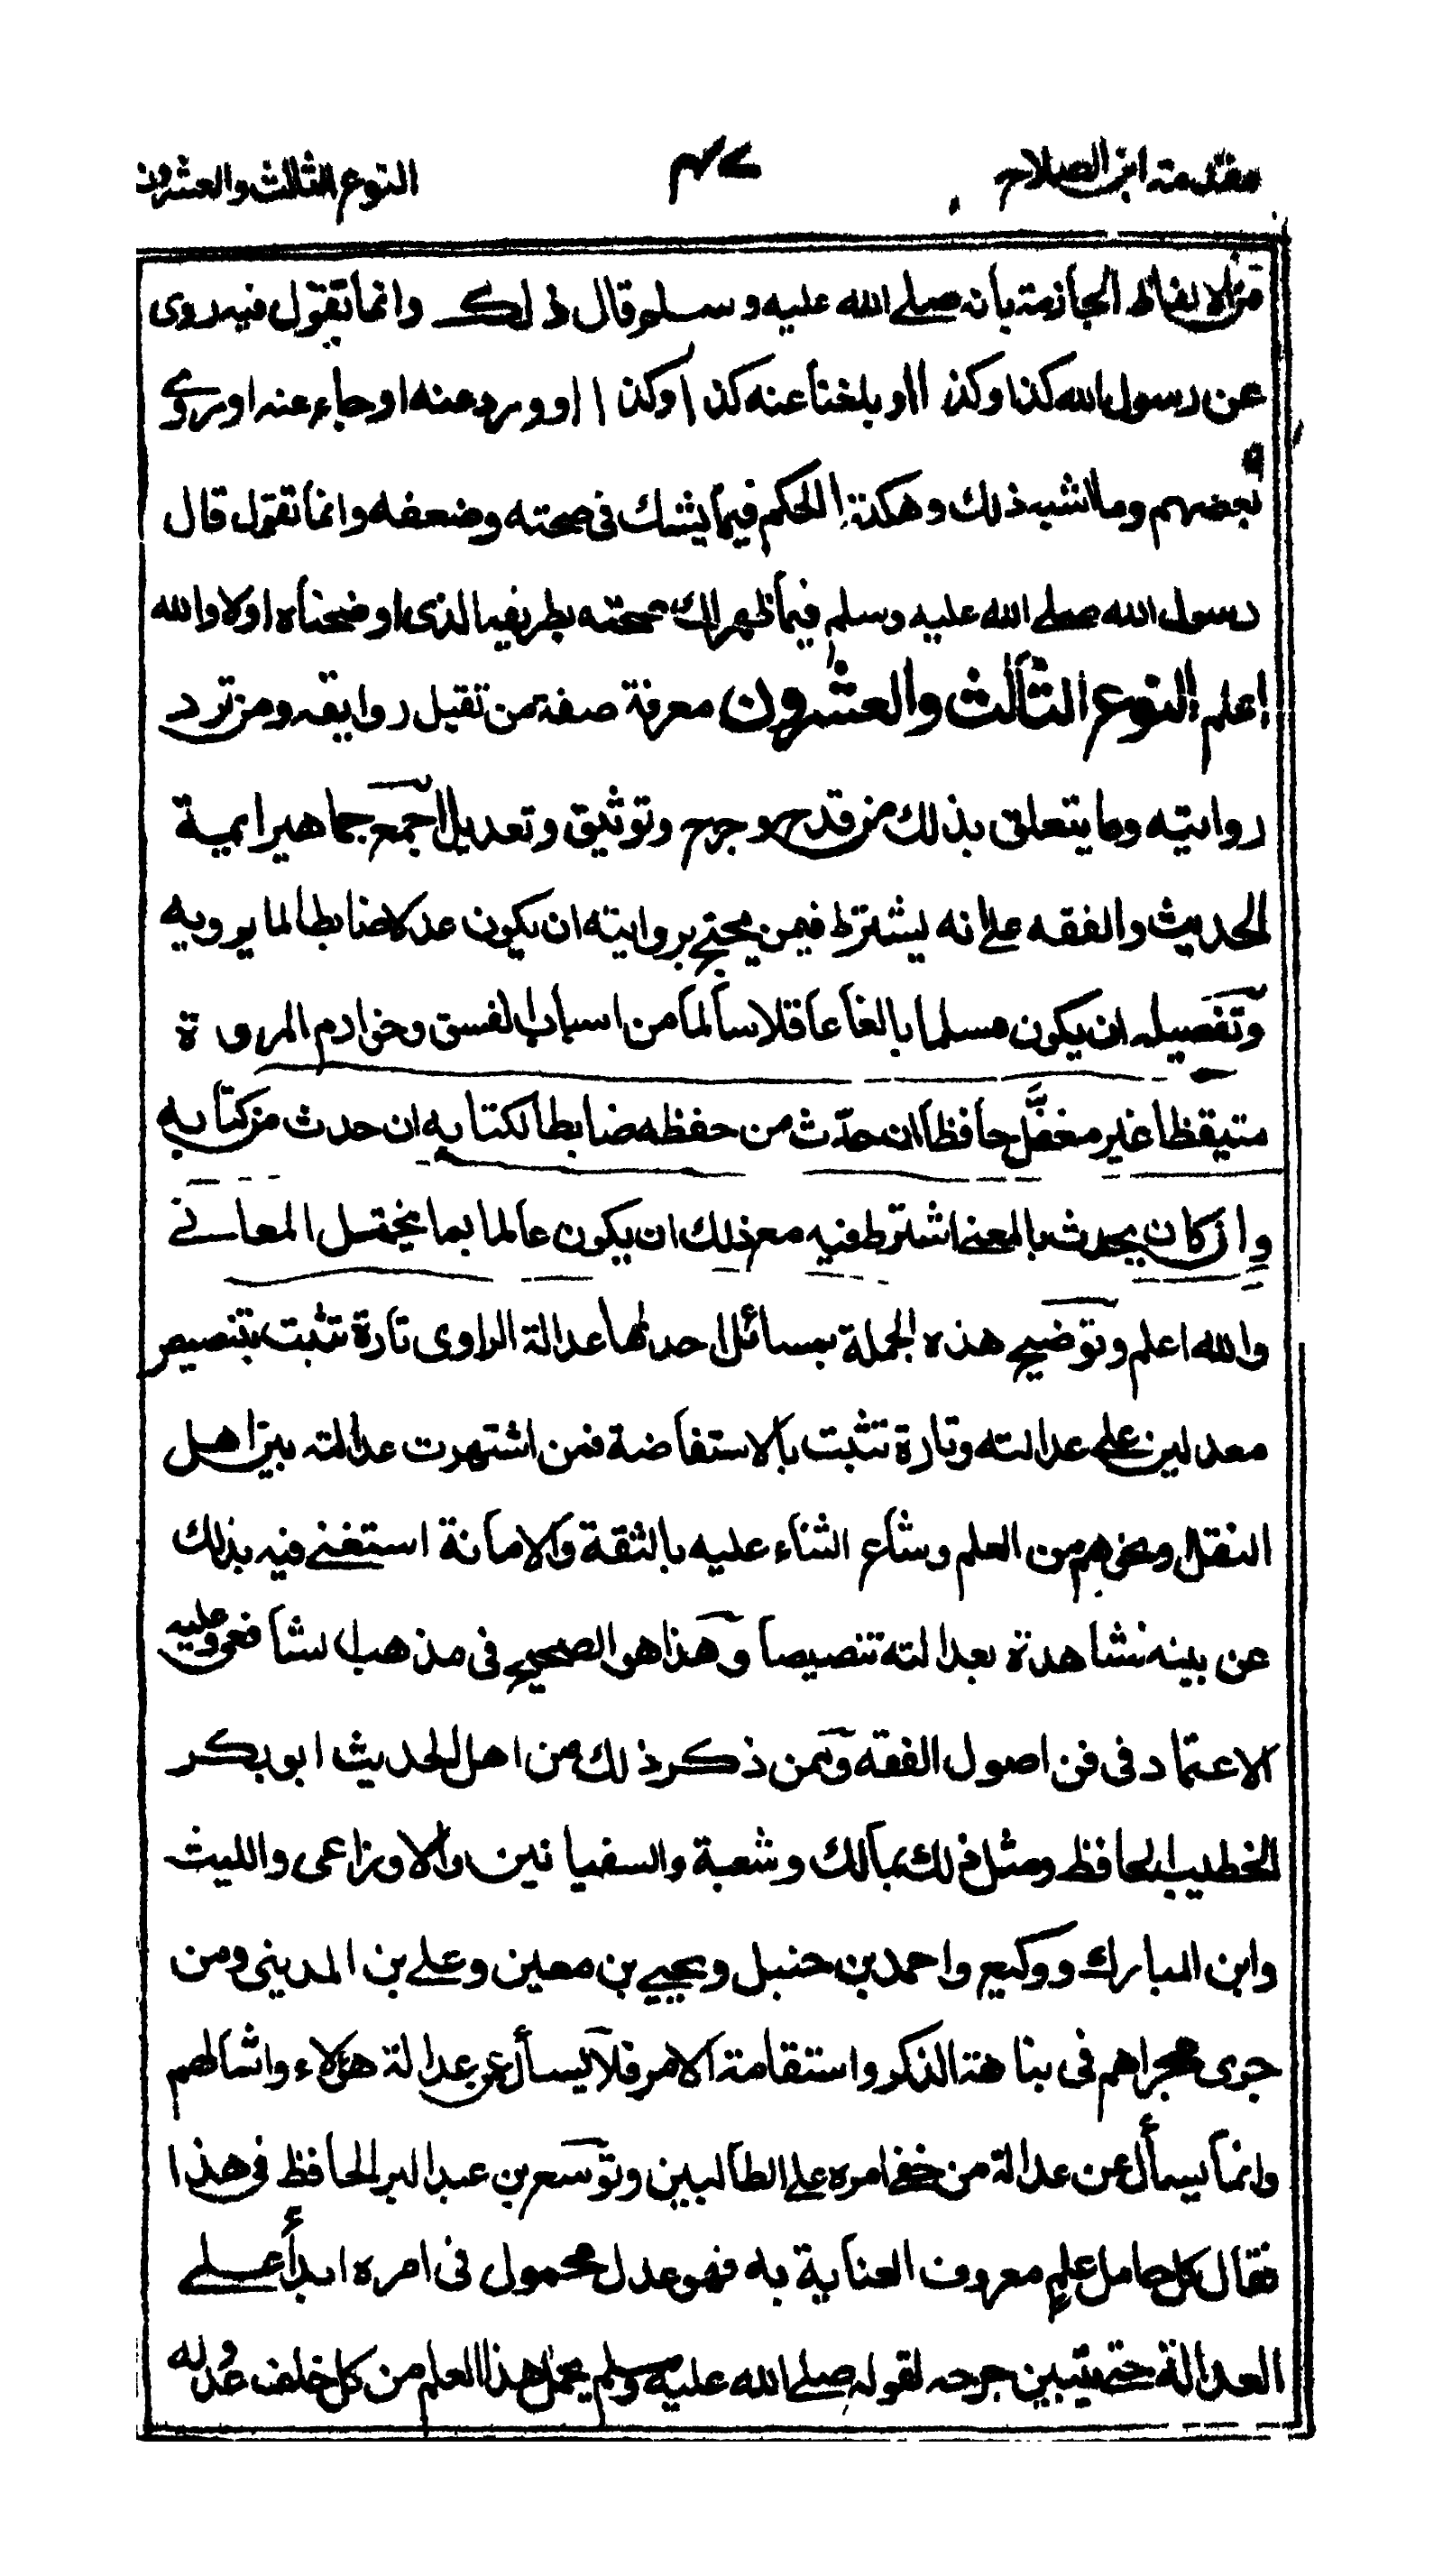 مقدمة ابن الصلاح ٤٧ النوع الثالث والعشرون
من الالفاظ الجازمة بانه صلى الله عليه وسلم قال ذلك وانما تقول فيه روى
عن رسول الله كذا وكذا او بلغنا عنه كذا وكذا او ورد عنه او جاء عنه او روى
بعضهم وما اشبه ذلك وهكذا الحكم فيما يشك فى صحته وضعفه وانما تقول قال
رسول الله صلى الله عليه وسلم فيما ظهر لك صحته بطريقها الذى اوضحناه اولا والله
اعلم النوع الثالث والعشرون معرفة صفة من تقبل روايته ومن ترد
روايته وما يتعلق بذلك من قدح وجرح وتوثيق وتعديل اجمع جماهير ايمة
الحديث والفقه على انه يشترط فيمن يحتج بروايته ان يكون عدلا ضابطا لما يرويه
وتفصيله ان يكون مسلما بالغا عاقلا سالما من اسباب الفسق وخوارم المروة
متيقظا غير مغفل حافظا ان حدث من حفظه ضابطا لكتابه ان حدث من كتابه
وان كان يحدث بالمعنى اشترط فيه مع ذلك ان يكون عالما بما يختل المعانى
والله اعلم وتوضيح هذه الجملة بمسائل احدلها عدالة الراوى تارة تثبت بتنصيص
معدلين على عدالته وتارة تثبت بالاستفاضة فمن اشتهرت عدالته بين اهل
النقل ونحوهم من العلم وشاع الثناء عليه بالثقة والامانة استغنى فيه بذلك
عن بينه شاهدة بعدالته تنصيصا وهذا هو الصحيح فى مذهب الشافعى وعليه
الاعتماد فى فن اصول الفقه وممن ذكر ذلك من اهل الحديث ابو بكر
الخطيب الحافظ ومثل ذلك بمالك وشعبة والسفيانين والاوزاعى والليث
وابن المبارك ووكيع واحمد بن حنبل ويحيى بن معين وعلى بن المدينى ومن
جرى مجراهم فى نباهة الذكر واستقامة الامر فلا يسأل عن عدالة هؤلاء وامثالهم
وانما يسأل عن عدالة من خفى امره على الطالبين وتوسع بن عبد البر الحافظ فى هذا
فقال كل حامل علم معروف العناية به فهو عدل محمول فى امره ابدا على
العدالة حتى يتبين جرحه لقوله صلى الله عليه وسلم يحمل هذا العلم من كل خلف عدوله